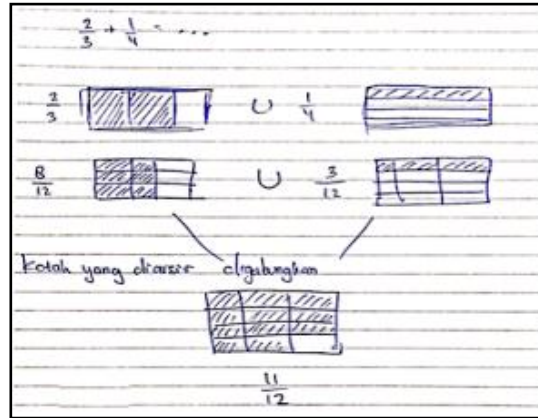 2/3 + 1/4 = ...
2/3 ∪ 1/4
8/12 ∪ 3/12
Kotak yang diarsir digabungkan
11/12